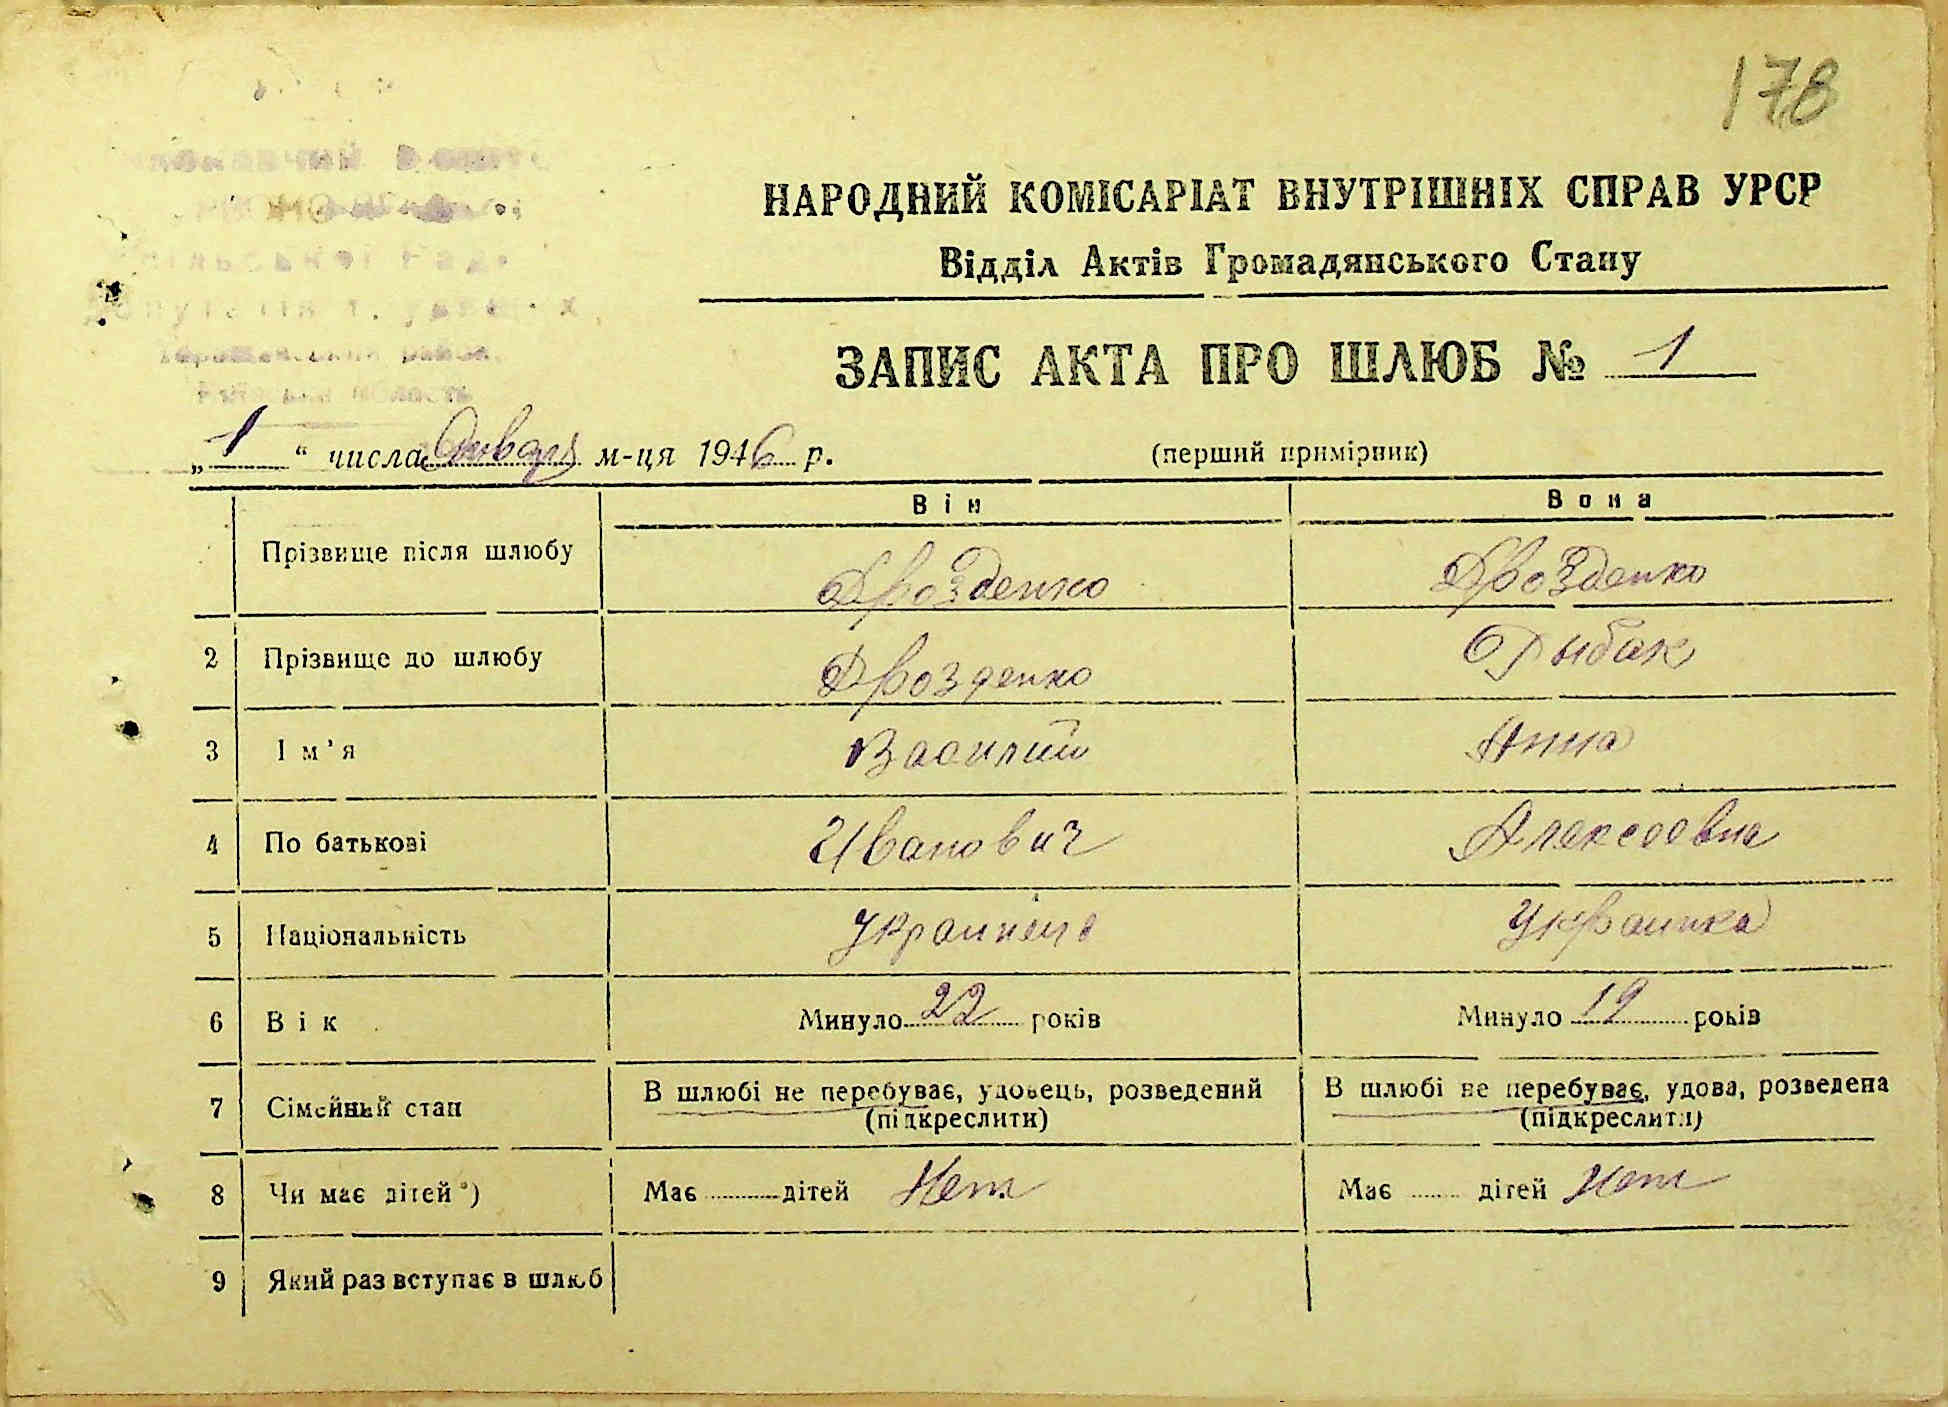 178
НАРОДНИЙ КОМІСАРІАТ ВНУТРІШНІХ СПРАВ УРСР
Відділ Актів Громадянського Стану
ЗАПИС АКТА ПРО ШЛЮБ № 1
„1“ числа Января м-ця 1946 р.
(перший примірник)
Він
Вона
Прізвище після шлюбу
Дрозденко
Дрозденко
2 Прізвище до шлюбу
Дрозденко
Рыбак
3 Ім'я
Василий
Анна
4 По батькові
Иванович
Алексеевна
5 Національність
Украинец
Украинка
6 Вік
Минуло 22 років
Минуло 19 років
7 Сімейный стан
В шлюбі не перебуває, удовець, розведений
(підкреслити)
В шлюбі не перебуває, удова, розведена
(підкреслити)
8 Чи має дітей *)
Має дітей Нет
Має дітей Нет
9 Який раз вступає в шлюб